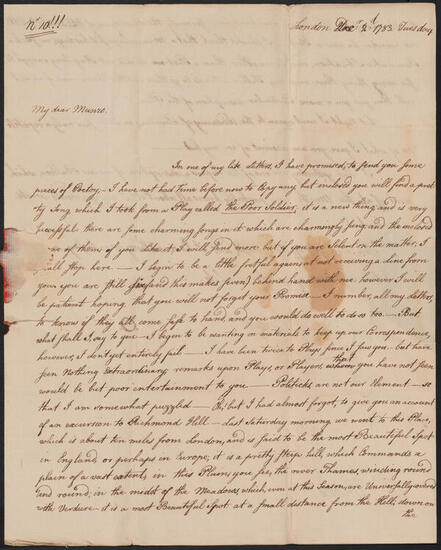 No 10!!!
London Decr 2d 1783 Tuesday
My dear Munro.
In one of my late Letters, I have promised, to send you some
pieces of Poetry;— I have not had time before now to Copy any but enclosed you will find a pret-
ty Song which I took from a Play called the Poor Soldier, it is a new thing and is very
successful there are some charming songs in it which are charmingly sung and the enclosed
one of them if you like it, I will send more but if you are Silent on the matter, I
shall stop here — I begin to be a little fretful again at not receiving a line from
you you are still five (and this makes seven) behind hand with me however I will
be patient hoping that you will not forget your Promise — I number all my letters,
to know if they all come safe to hand, and you would do well to do so too. — But
what shall I say to you — I begin to be wanting in materials to keep up our Correspondence,
however, I don't yet entirely fail — I have been twice to Plays since I saw you — but have
seen Nothing Extraordinary remarks upon Plays, or Players that you have not seen
would be but poor entertainment to you — Politicks are not our Element — so
that I am somewhat puzzled — Oh; but I had almost forgot, to give you an account
of an excursion to Richmond Hill — Last Saturday morning we went to this Place,
which is about ten miles from London, and is said to be the most Beautiful Spot
in England, or perhaps in Europe; it is a pretty steep hill, which Commands a
plain of a vast extent, in this Plain you see, the river Thames, winding round
and round; in the midst of the Meadows which, even at this Season, are Universally covered
with Verdure — it is a most Beautiful Spot. at a small distance from the Hill, down on
the